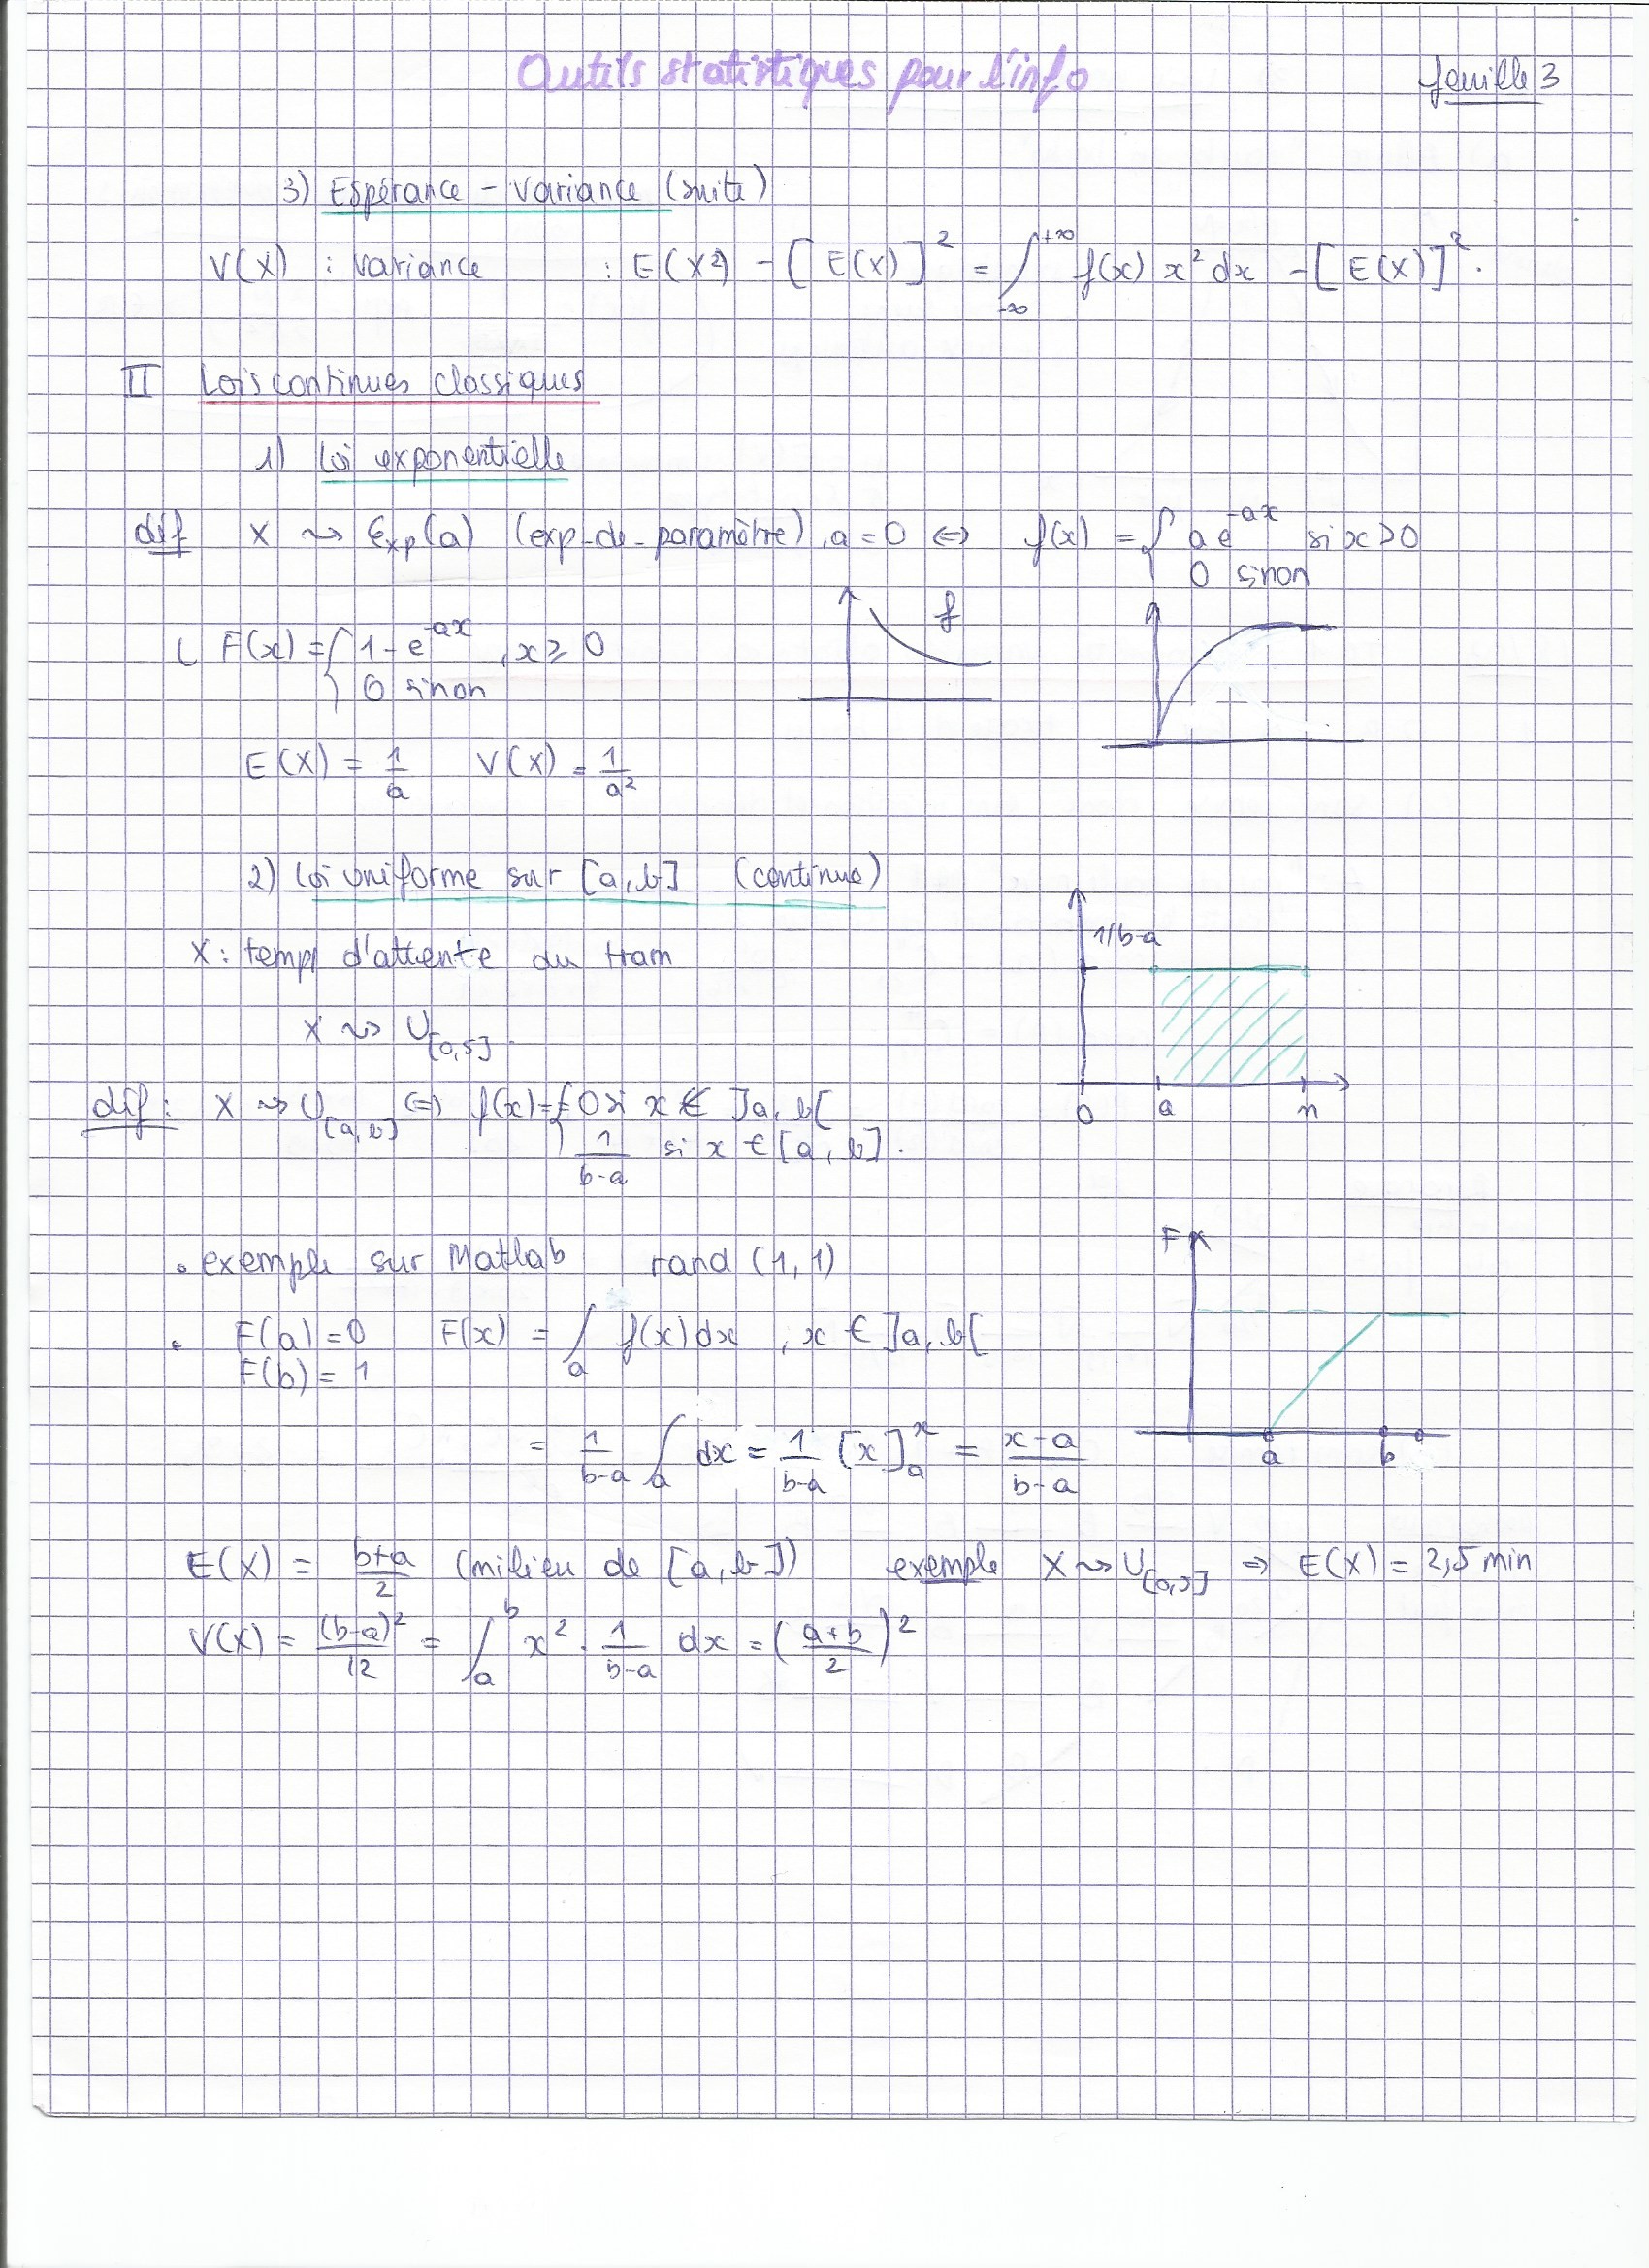 Outils statistiques pour l'info feuille 3
3) Espérance - Variance (suite)
V(X) : variance : E(X²) - [E(X)]² = ∫_{-∞}^{+∞} f(x) x² dx - [E(X)]².
II Lois continues classiques
1) Loi exponentielle
déf X ⇝ Exp(a) (exp-de-paramètre), a = 0 ⇔ f(x) = { a e^{-ax} si x > 0
0 sinon
f
F(x) = { 1 - e^{-ax}, x ≥ 0
0 sinon
E(X) = 1/a V(X) = 1/a²
2) Loi uniforme sur [a, b] (continue)
1/b-a
X : temps d'attente du tram
X ⇝ U_{[0,5]}.
0 a n
déf : X ⇝ U_{[a,b]} ⇔ f(x) = { 0 si x ∉ ]a, b[
1/(b-a) si x ∈ [a, b].
F
• exemple sur Matlab rand (1, 1)
• F(a) = 0 F(x) = ∫_a f(x) dx, x ∈ ]a, b[
F(b) = 1
= 1/(b-a) ∫_a dx = 1/(b-a) [x]_a^x = (x-a)/(b-a)
a b
E(X) = (b+a)/2 (milieu de [a, b]) exemple X ⇝ U_{[0,5]} ⇒ E(X) = 2,5 min
V(X) = (b-a)²/12 = ∫_a^b x² · 1/(b-a) dx = ((a+b)/2)²